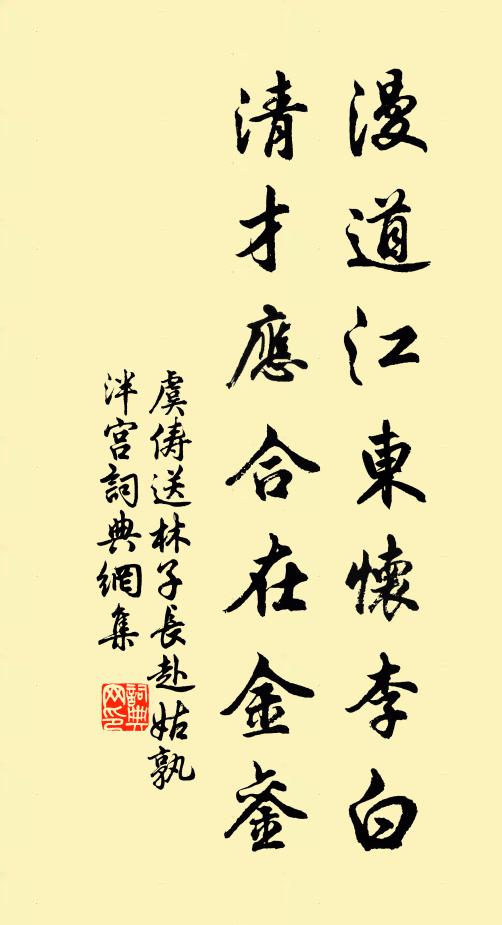 漫道江東懷李白
清才應合在金銮
虞俦送林子長赴姑孰
泮宫詞典網集
詞典网印